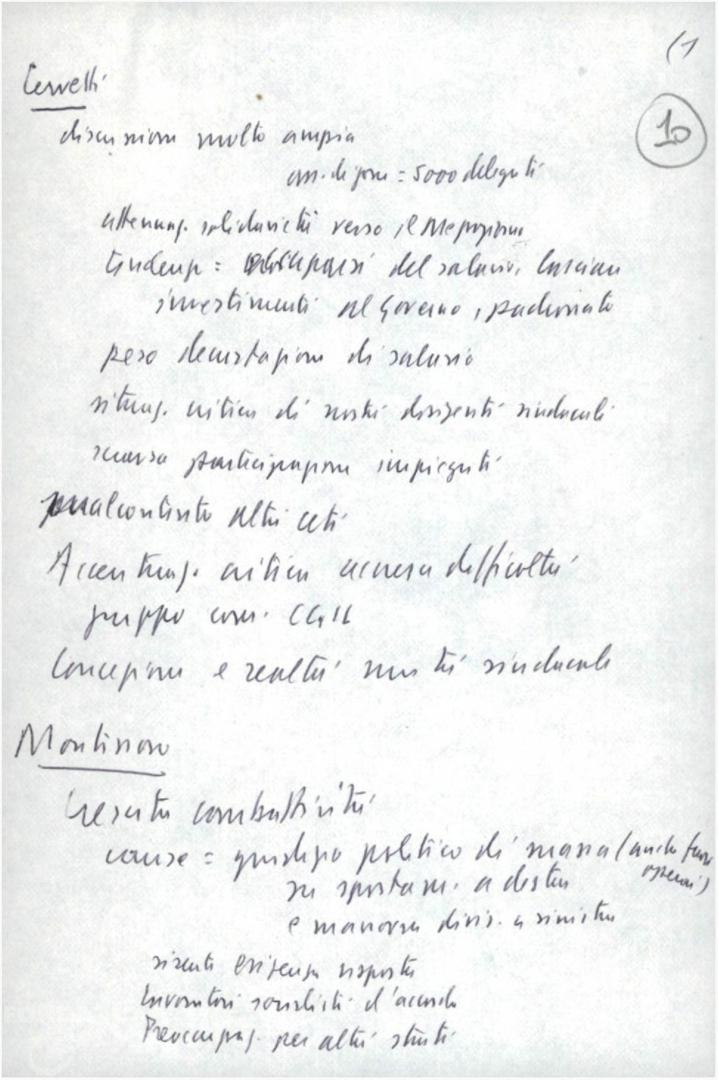 (1
10
Cervetti
discussione molto ampia
= 5000 delegati
attenuaz. solidarietà verso il Mezzogiorno
tendenza = del salario, lasciare
investimenti al Governo, padronato
peso decurtazione di salario
situaz. critica di nostri dirigenti sindacali
scarsa partecipazione impiegati
malcontento altri ceti
Accentuaz. critica accresce difficoltà
gruppo com. CGIL
Concezione e realtà unità sindacale
Montessoro
Cresciuta combattività
cause = giudizio politico di massa (anche fuori
operai)
su spostam. a destra
e manovra divis. a sinistra
esigenza risposta
lavoratori socialisti d'accordo
Preoccupaz. per altri strati